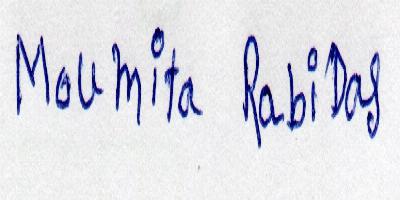 Moumita RabiDas